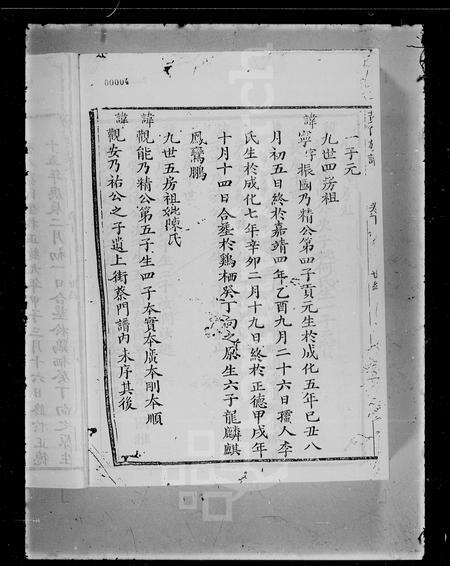 00004
一子元
九世四房祖
諱寧字振國乃精公第四子貢元生於成化五年己丑八
月初五日終於嘉靖四年乙酉九月二十六日孺人李
氏生於成化七年辛卯二月十九日終於正德甲戌年
十月十四日合塟於鷄栖癸丁向之原生六子龍麟麒
鳳鸞鵬
九世五房祖妣陳氏
諱觀能乃精公第五子生四子本實本廣本剛本順
諱觀安乃祐公之子遺上街蔡門譜內未序其後